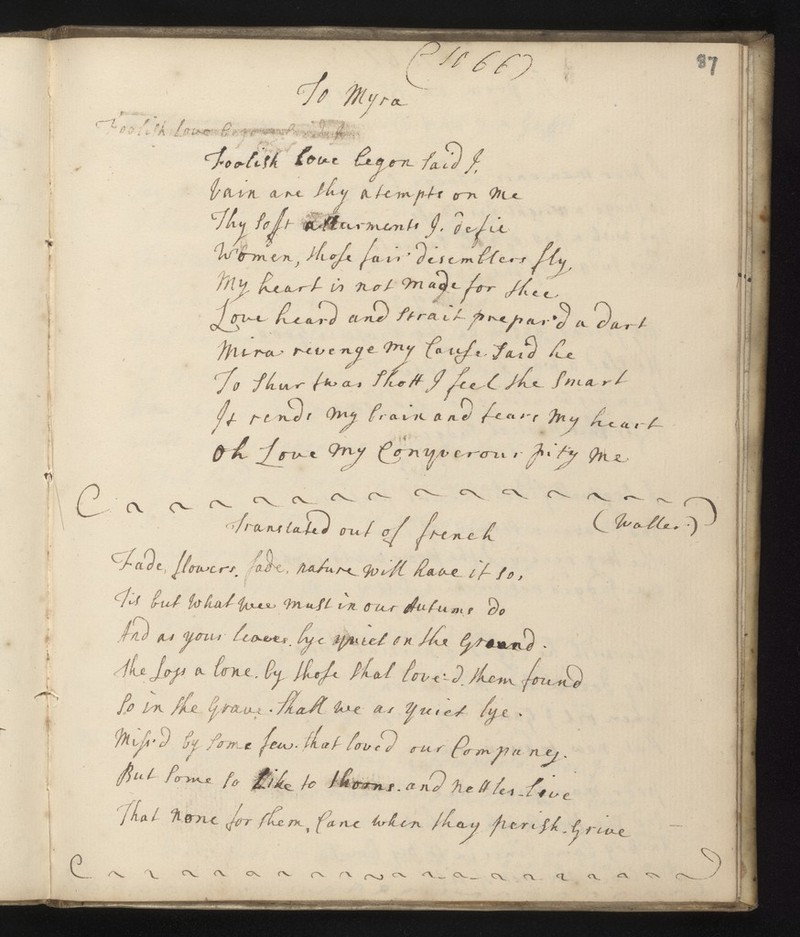 (1066)
87
To Myra
Foolish Love begon
Foolish Love begon said J,
Vain are thy atempts on me
Thy soft allurments J. defie
Women, those fair disemblers fly
My heart is not made for thee
Love heard and strait prepar'd a dart
Mira revenge my Cause said he
To shur twas shott J feel the smart
Jt rends my brain and tears my heart
oh Love my Conyverour pity me
Translated out of french (Waller.)
Fade, flowers. fade. nature will have it so,
Tis but what wee must in our Autums do
And as your leaves. lye quiet on the Ground.
the loss a lone. by those that love:d. them found
So in the Grave. shall we as quiet lye.
Miss:d by some few. that loved our Company.
But some so like to thorns. and nettles-live
That none for them, Cane when thay perish-Grive